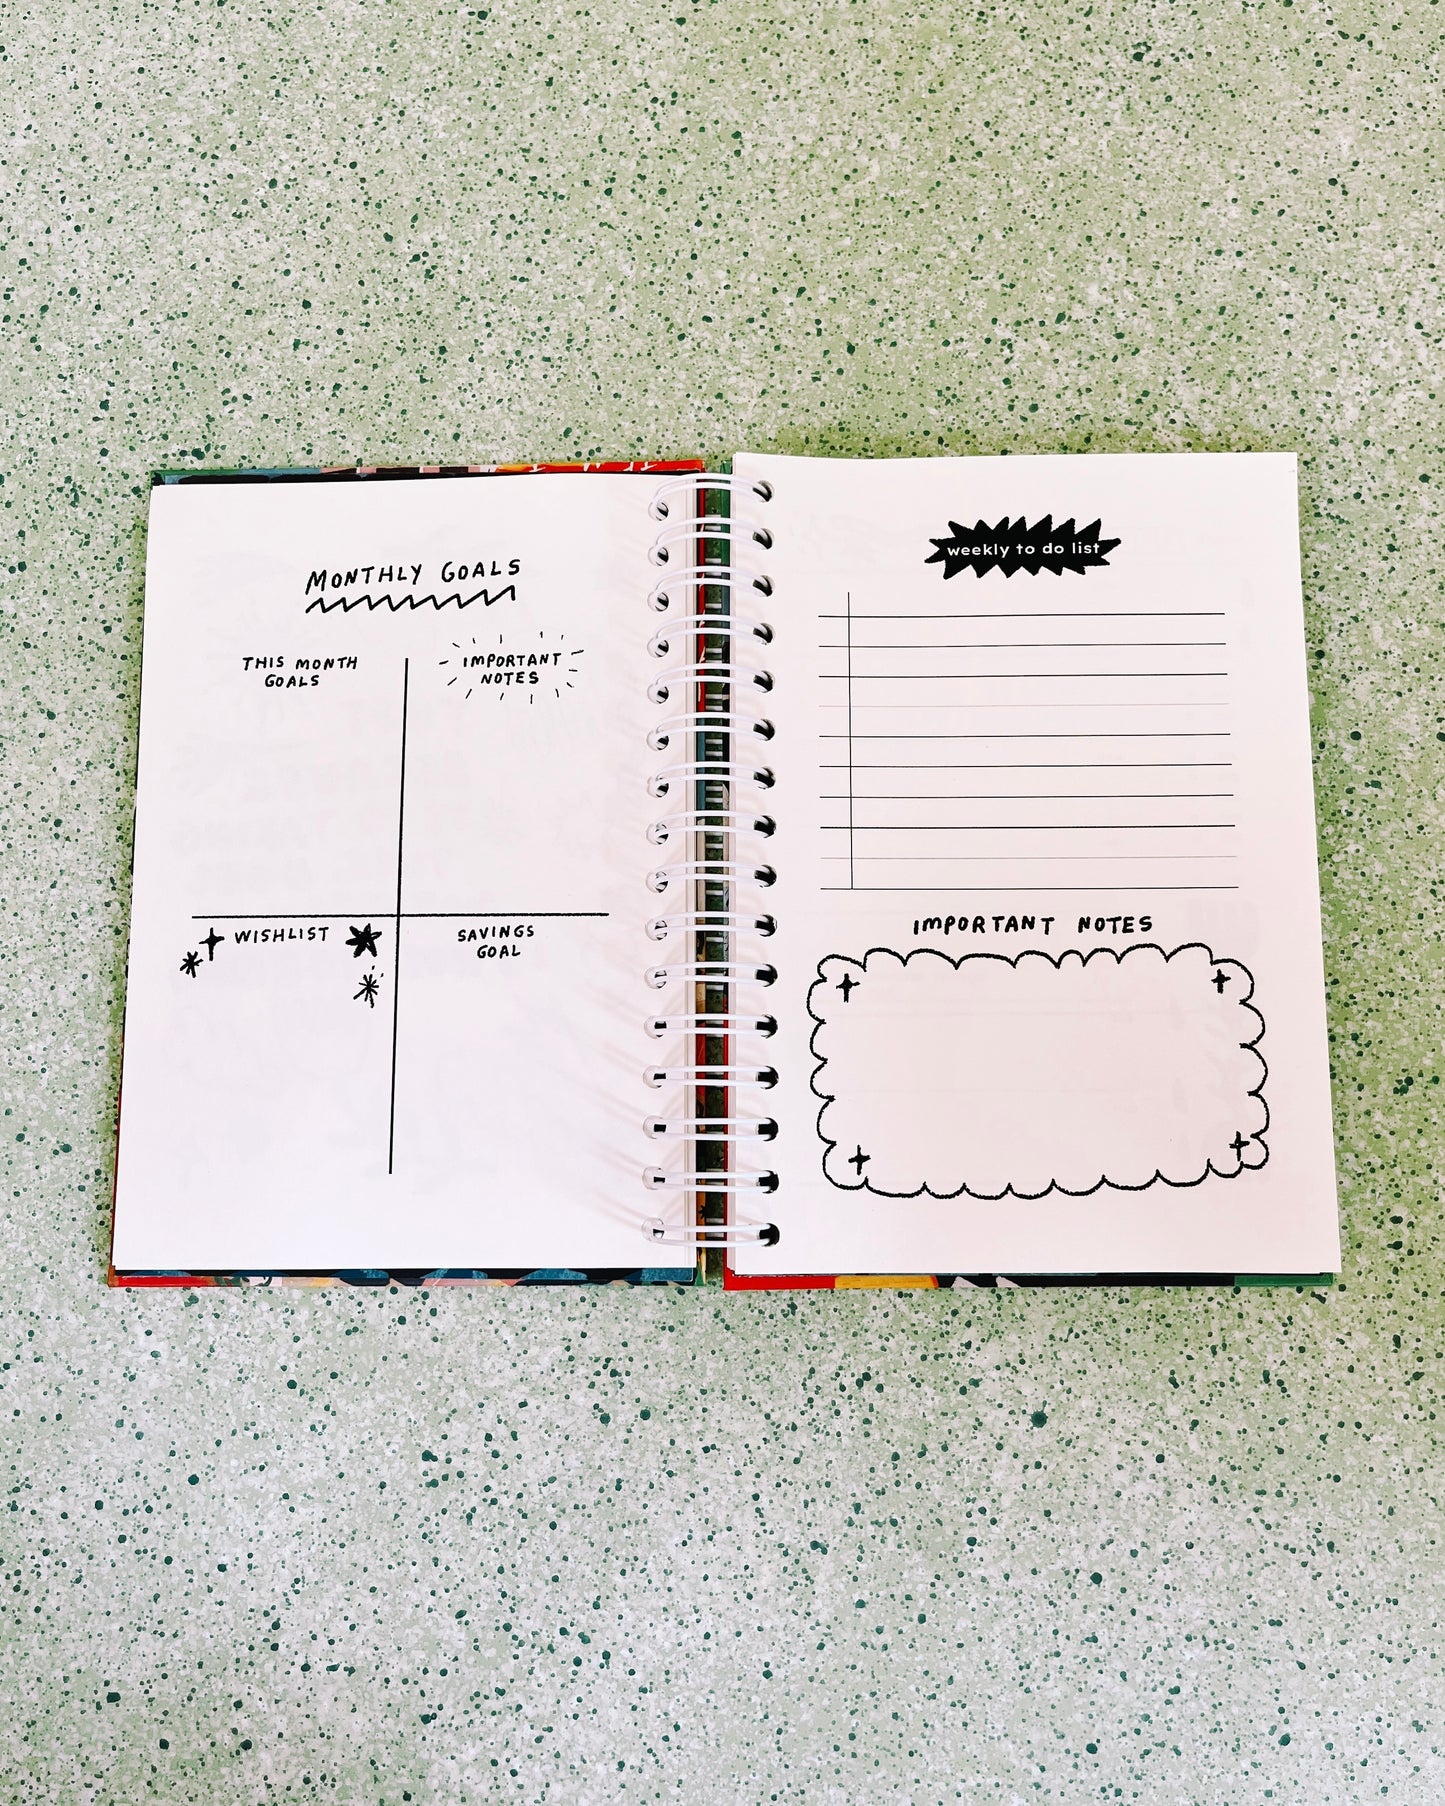 MONTHLY GOALS
THIS MONTH
GOALS
IMPORTANT
NOTES
WISHLIST
SAVINGS
GOAL
weekly to do list
IMPORTANT NOTES